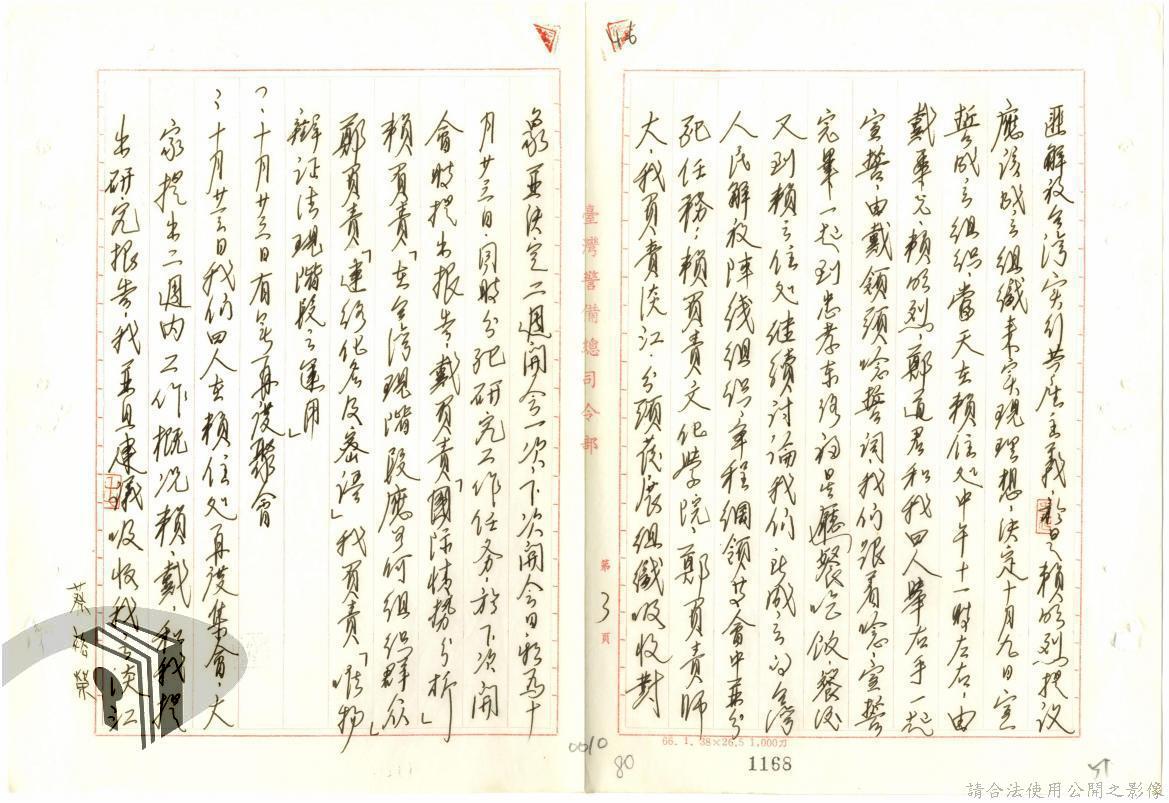 匪解放台灣实行共產主義、於是賴明烈提议
應该成立组織来实現理想、決定十月九日宣
誓成立组织、當天在賴住处中午十一時左右、由
戴華光、賴明烈、鄭道君和我四人舉右手一起
宣誓、由戴領頭唸誓词我们跟着唸、宣誓
完畢一起到忠孝东路的星廳餐吃飯、餐後
又到賴之住处继续讨論我们所成立的台湾
人民解放陣线组织章程綱領等、會中並分
配任務：賴負責文化學院、鄭負責師
大、我負責淡江、分頭发展组織吸收對
象並決定二週開会一次、下次開会日期為十
月廿三日、同時分配研究工作任务、於下次開
會時提出报告、戴負責「國际情勢分析」
賴負責「在台湾現階段應如何组织群众」
鄭負責「連络化名及暗语」我負責「唯物
辯证法現階段之運用」
十月廿三日有無再度聚會
十月廿三日我们四人在賴住处再度集會、大
家提出二週内工作概况、賴、戴、和我提
出研究报告、我並且建議吸收我在淡江
臺灣警備總司令部
第3頁
蔡裕榮
0010
80
66. 1. 38×26.5 1,000刀
1168
請合法使用公開之影像